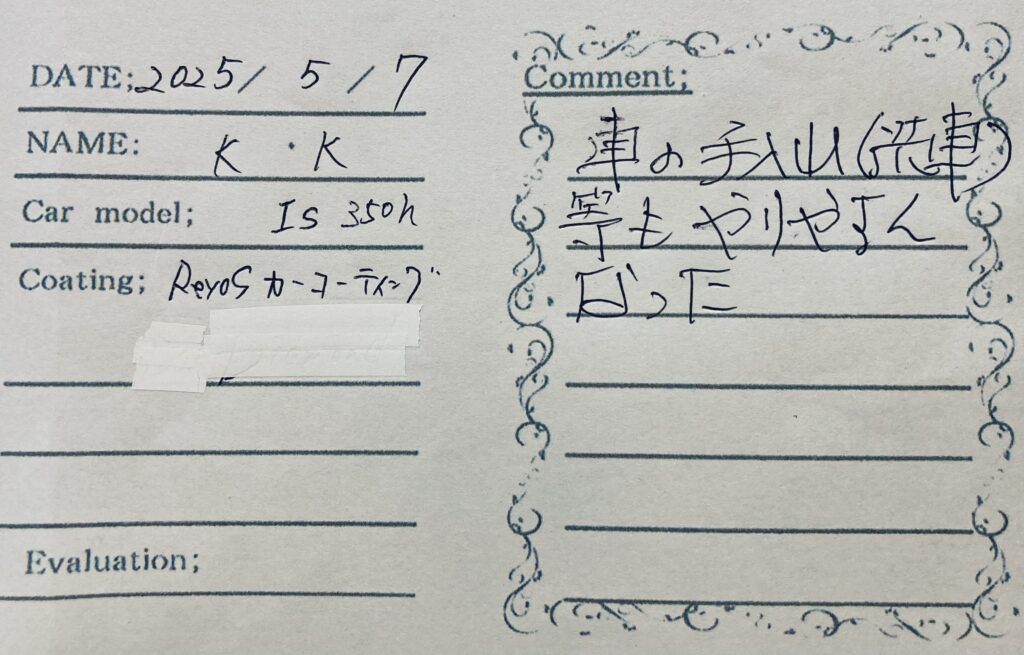 DATE; 2025 / 5 / 7
NAME: K・K
Car model; Is 350h
Coating; ReyoS カーコーティング
Evaluation;
Comment;
車の手入れ(洗車)
等もやりやすく
なった